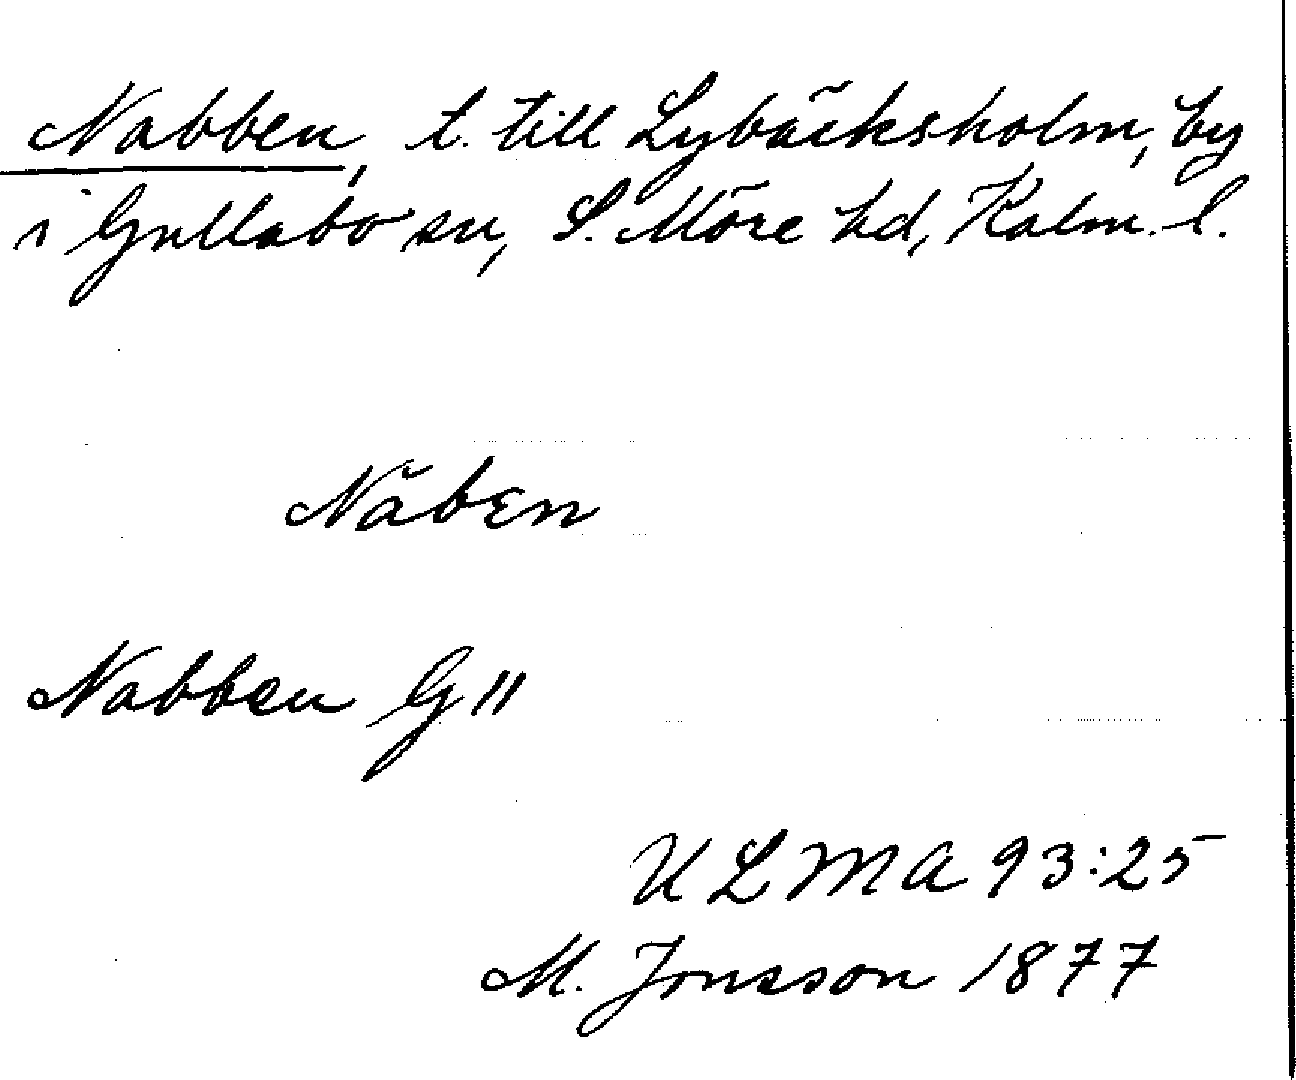 Nabben, t. till Lybäcksholm, by
i Gullabo sn, S. Möre hd, Kalm. l.
Näben
Nabben G 11
ULMA 93:25
M. Jonsson 1877